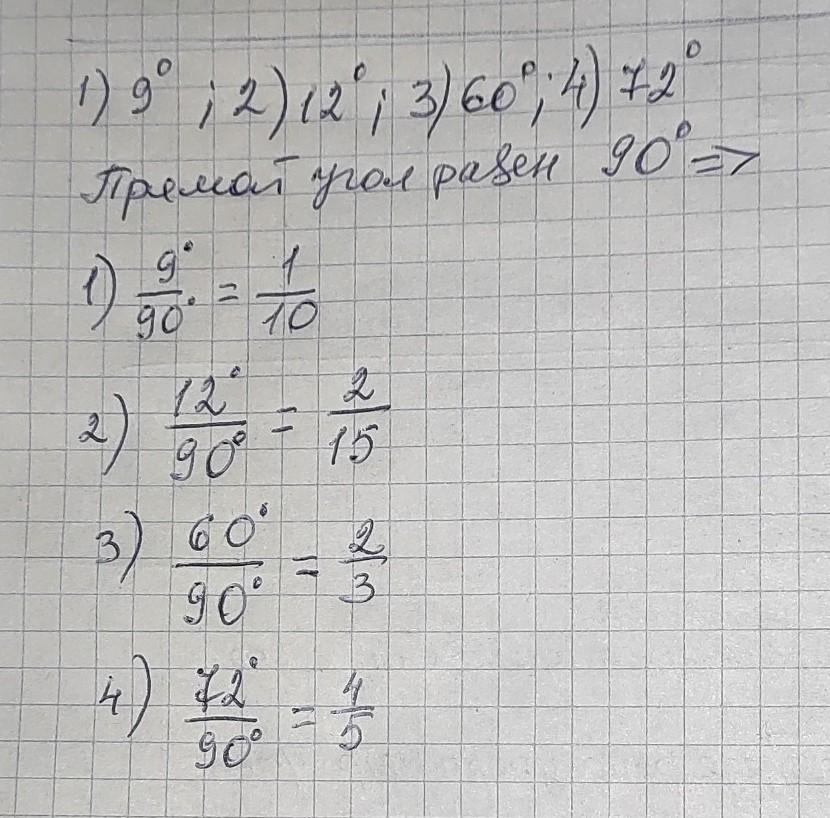 1) 9° ; 2) 12° ; 3) 60° ; 4) 72°
Прямой угол равен 90° =>
1) 9°/90° = 1/10
2) 12°/90° = 2/15
3) 60°/90° = 2/3
4) 72°/90° = 4/5